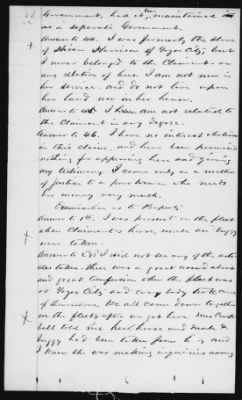 Government, had it been maintained
as a separate Government.
Answer to 44. I was formerly the slave
of Hiram Harrison of Yazoo City, but
I never belonged to the Claimant or
any relation of hers. I am not now in
her service. and do not live upon
her land nor in her house.
Answer to 45 I am not related to
the Claimant in any degree.
Answer to 46. I have no interest whatever
in this claim, and have been promised
nothing for appearing here and giving
my testimony. I come only as a matter
of justice to a poor woman who needs
her money very much.
Examination as to Property
Answer to 1st. I was present in the fleet
when Claimant's horse, mule and buggy
were taken.
Answer to 2d I did not see any of the articles
taken. there was a great crowd about
and great confusion when the fleet was
at Yazoo City and every body took care
of themselves. We all came down together
in the fleet, after we got here Mrs Camp-
bell told me her horse and mule &
buggy had been taken from her and
I know she was making inquiries among